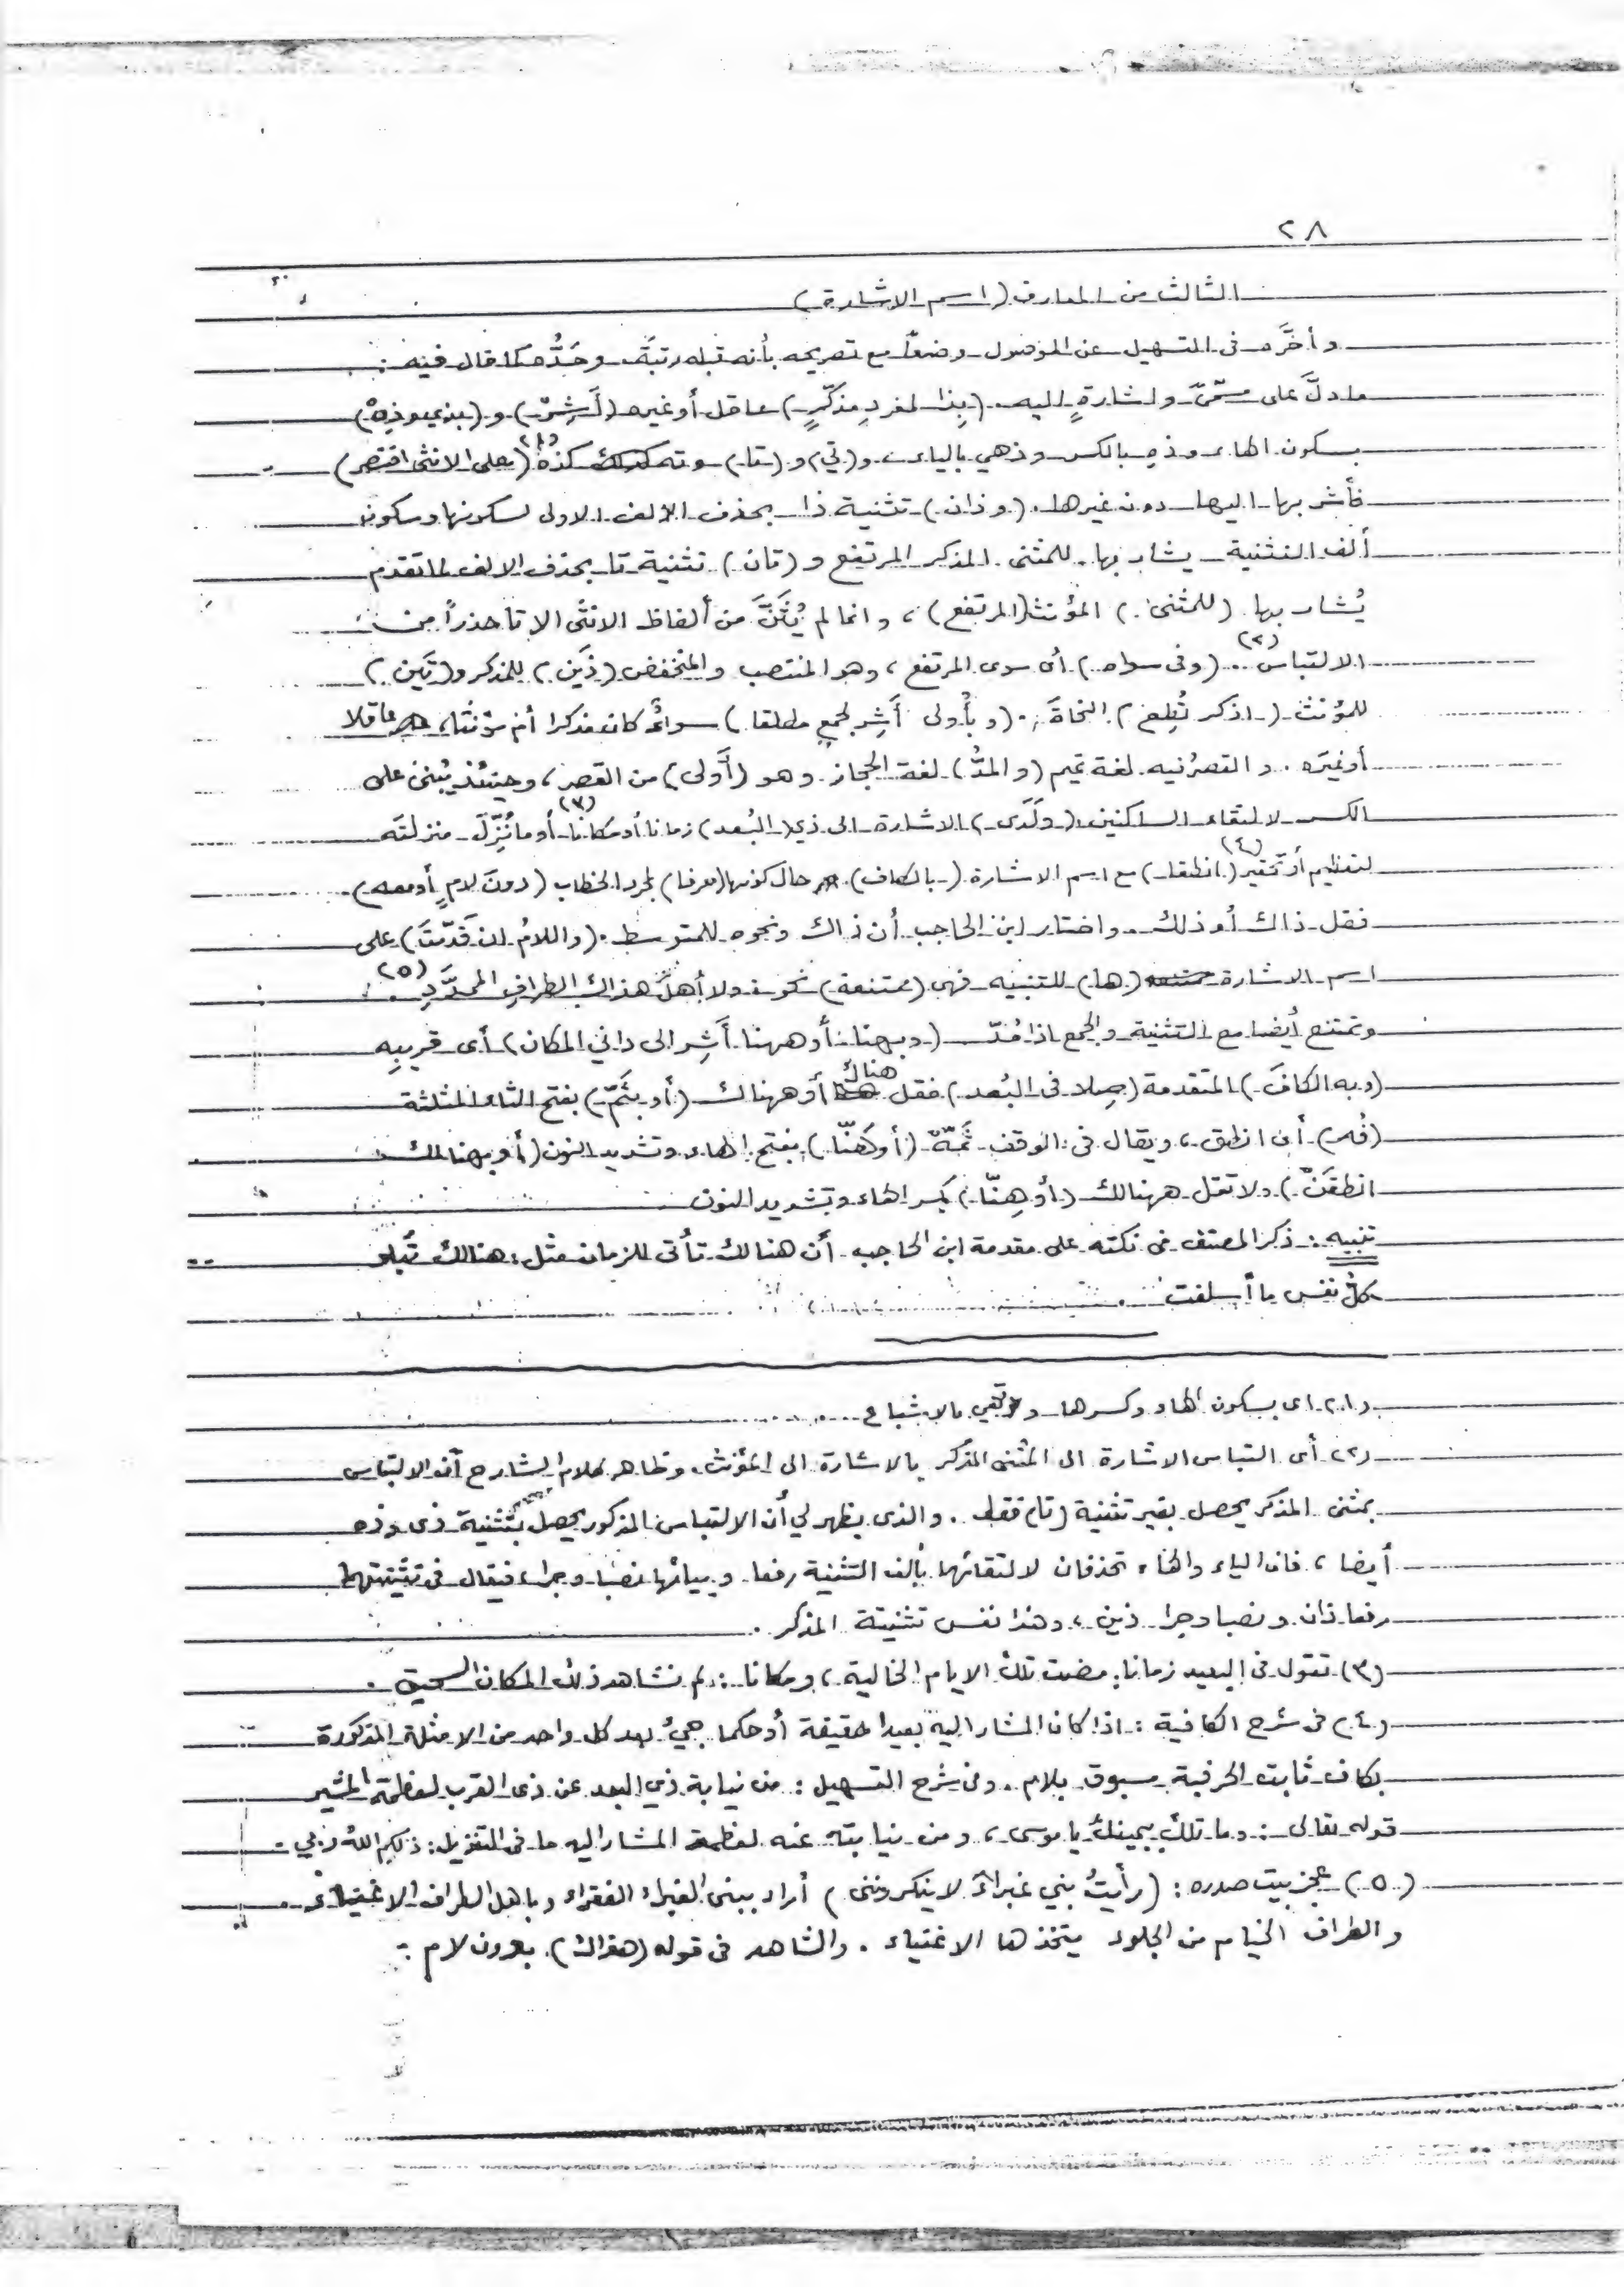 ٢٨
الثالث من المعارف (اسم الاشارة)
وأخّره فى التسهيل عن الموصول وضعاً مع تصريحه بأنه قبله رتبةً وحَدُّه كما قال فيه:
ما دلّ على مسمّىً واشارةٍ اليه. (بِذا لمفردٍ مذكّرٍ) عاقل أو غيره (أَشِرْ) و (بذي وذِهْ)
بسكون الهاء وذهِ بالكسر وذهي بالياء، و(تي) و (تا) وته كذه (١) (على الانثى اقتصر)
فأشر بها اليها دون غيرها. (وذان) تثنية ذا بحذف الالف الاولى لسكونها وسكون
ألف التثنية يشار بها للمثنى المذكر المرتفع و (تان) تثنية تا بحذف الالف لما تقدم
يُشار بها (للمثنى) المؤنث (المرتفع)، وانما لم يُثَنَّ من ألفاظ الانثى الا تا حذراً من
الالتباس (٢). (وفى سواه) أى سوى المرتفع، وهو المنتصب والمنخفض (ذَين) للمذكر و(تَين)
للمؤنث (اذكر تُطِع) النحاةَ. (وبأُولى أَشِر لجمعٍ مطلقا) سواءٌ كان مذكرا أم مؤنثا، عاقلا
أو غيرَه. والقصرُ فيه لغة تميم (والمدُّ) لغة الحجاز وهو (أَولى) من القصر، وحينئذ يُبنى على
الكسر لالتقاء الساكنين (ولَدَى) الاشارة الى ذي (البُعد) زمانا أو مكانا (٣) أو ما نُزِّلَ منزلتَه
لتعظيم أو تحقير (٤) (انطقا) مع اسم الاشارة (بالكاف) حال كونها (حرفا) لمجرد الخطاب (دونَ لامٍ أو معه)
فقل ذاك أو ذلك. واختار ابن الحاجب أن ذاك ونحوه للمتوسط. (واللامُ ان قَدّمتَ) على
اسم الاشارة (ها) للتنبيه فهى (ممتنعة) نحو: ولا أهلُ هذاك الطرافِ الممدَّدِ (٥).
وتمتنع أيضا مع التثنية والجمع اذا مُدّ (وبهنا أو ههنا أَشِر الى داني المكان) أى قريبِه
(وبه الكافَ) المتقدمة (صِلا فى البُعد) فقل هناك أو ههناك (أو بثَمّ) بفتح الثاء المثلثة
(فُه) أى انطق، ويقال فى الوقف ثَمّهْ (أو هَنّا) بفتح الهاء وتشديد النون (أو بهنالك
انطقَنْ) ولا تقل ههنالك (أو هِنّا) بكسر الهاء وتشديد النون
تنبيه: ذكر المصنف فى نكته على مقدمة ابن الحاجب أن هنالك تأتى للزمان مثل: هنالك تَبلو
كلُّ نفس ما أسلفت.
(١) اى بسكون الهاء وكسرها و بالاشباع
(٢) أى التباس الاشارة الى المثنى المذكر بالاشارة الى المؤنث. وظاهر كلام الشارح أنه الالتباس
بمثنى المذكر يحصل بغير تثنية (تا) فقط. والذى يظهر لي أن الالتباس المذكور يحصل بتثنية ذى وذه
أيضا، فان الياء والهاء تحذفان لالتقائهما بألف التثنية رفعا وبيائها نصبا وجرا، فيقال فى تثنيتهما
رفعا ذان ونصبا وجرا ذين، وهذا نفس تثنيتة المذكر.
(٣) تقول فى البعيد زمانا: مضت تلك الايام الخالية، ومكانا: لم نشاهد ذلك المكان السحيق.
(٤) فى شرح الكافية: اذا كان المشار اليه بعيدا حقيقة أو حكما جيءَ بعد كل واحد من الامثلة المذكورة
بكاف ثابت الحرفية مسبوق بلام. وفى شرح التسهيل: من نيابة ذي البعد عن ذى القرب لعظمة المشير
قوله تعالى: وما تلك بيمينك يا موسى، ومن نيابته عنه لعظمة المشار اليه ما فى التنزيل: ذلكم اللهُ ربي
(٥) عجز بيت صدره: (رأيتُ بني غبراءَ لا ينكروننى) أراد ببنى الغبراء الفقراء وبأهل الطراف الاغنياء.
والطراف الخيام من الجلود يتخذها الاغنياء. والشاهد فى قوله (هذاك) بدون لام.